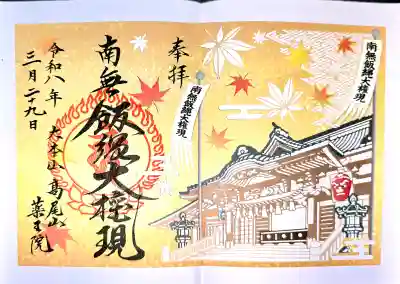 奉拝
南無飯縄大権現
令和八年
三月二十九日
大本山 髙尾山
薬王院
南無飯縄大権現
南無飯縄大権現